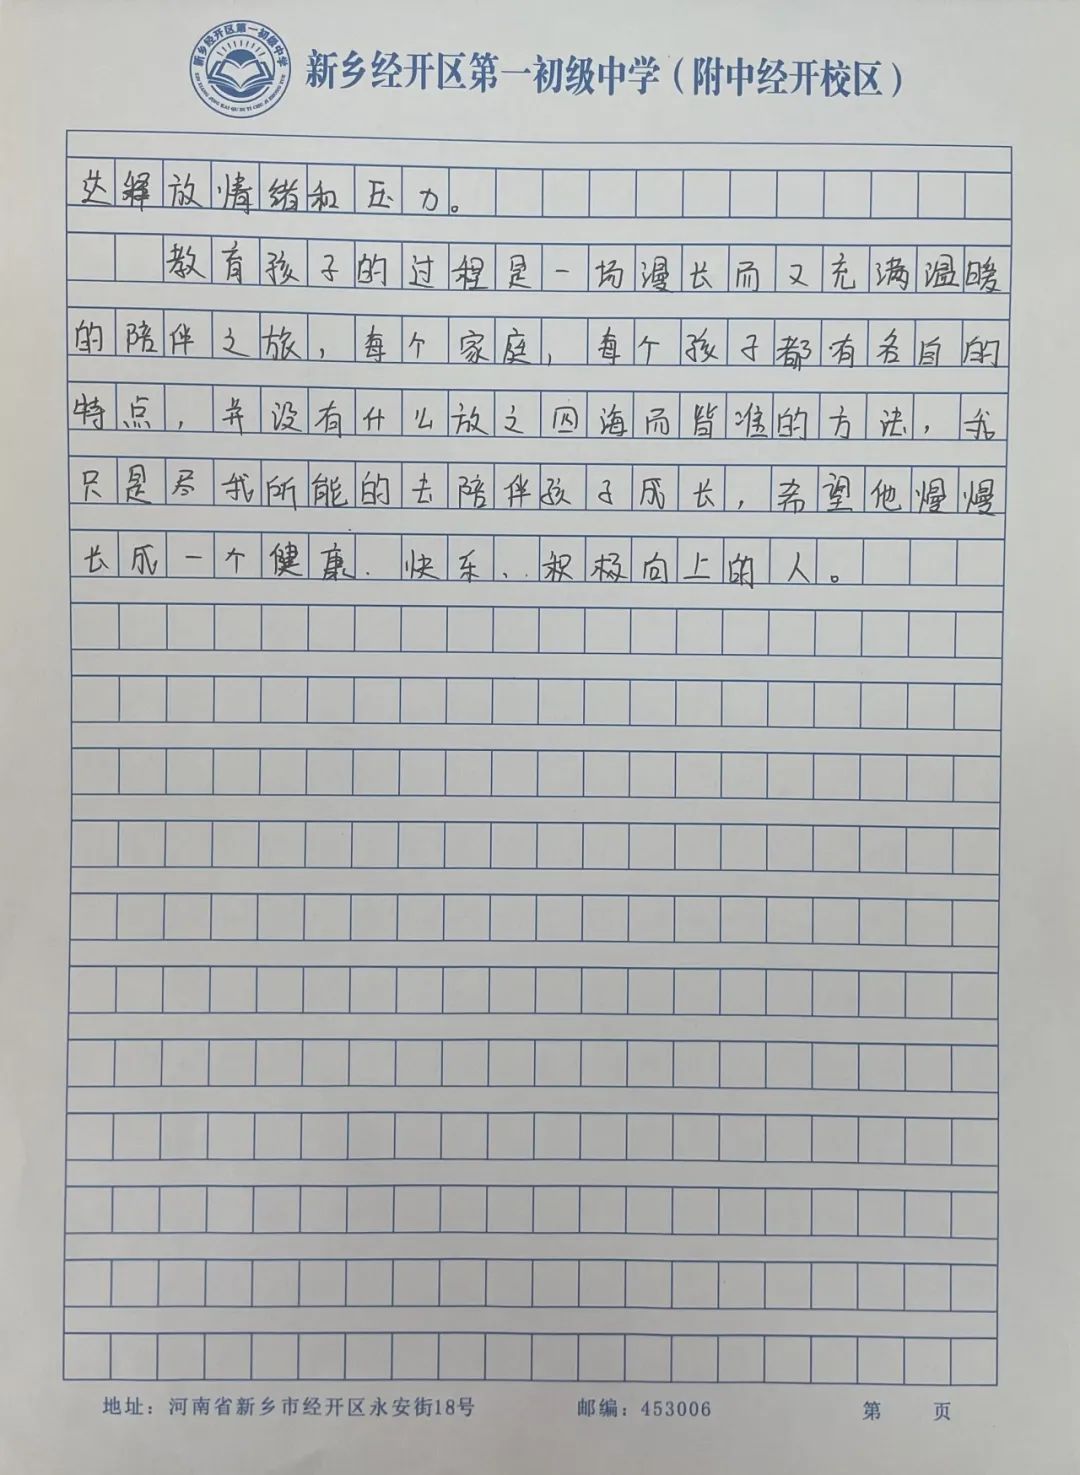 新乡经开区第一初级中学
新乡经开区第一初级中学（附中经开校区）
达释放情绪和压力。
教育孩子的过程是一场漫长而又充满温暖
的陪伴之旅，每个家庭，每个孩子都有各自的
特点，并没有什么放之四海而皆准的方法，我
只是尽我所能的去陪伴孩子成长，希望他慢慢
长成一个健康、快乐、积极向上的人。
地址：河南省新乡市经开区永安街18号 邮编：453006 第 页